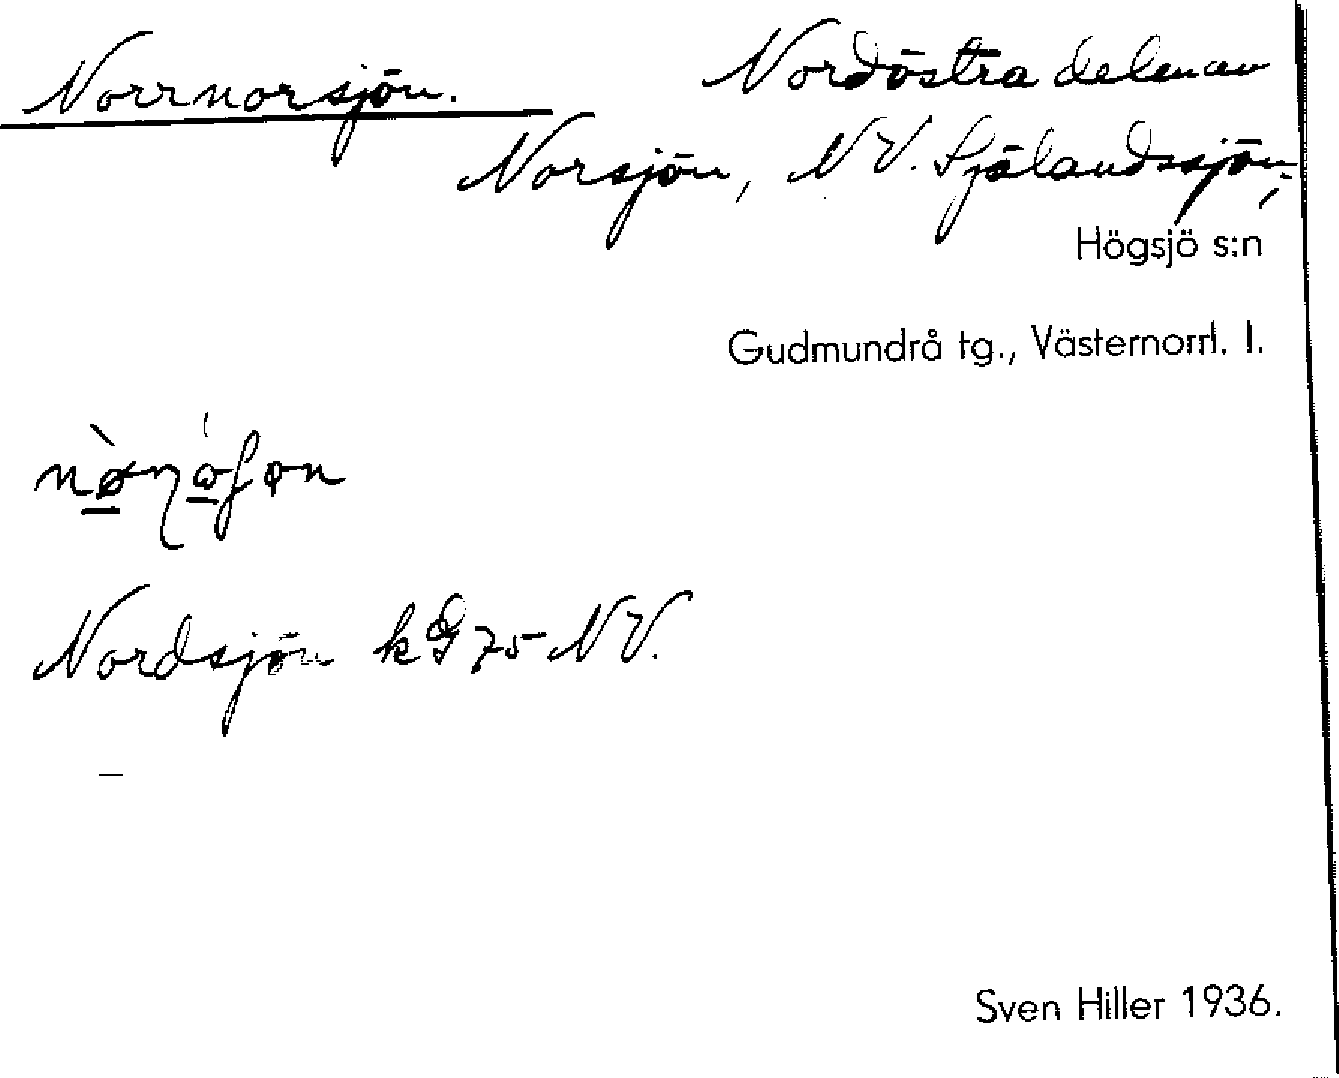 Norrnorsjön.
Nordöstra delen av
Norsjön, NV. Själandssjön,
Högsjö s:n
Gudmundrå tg., Västernorrl. l.
Nordsjön kG 75 NV.
Sven Hiller 1936.